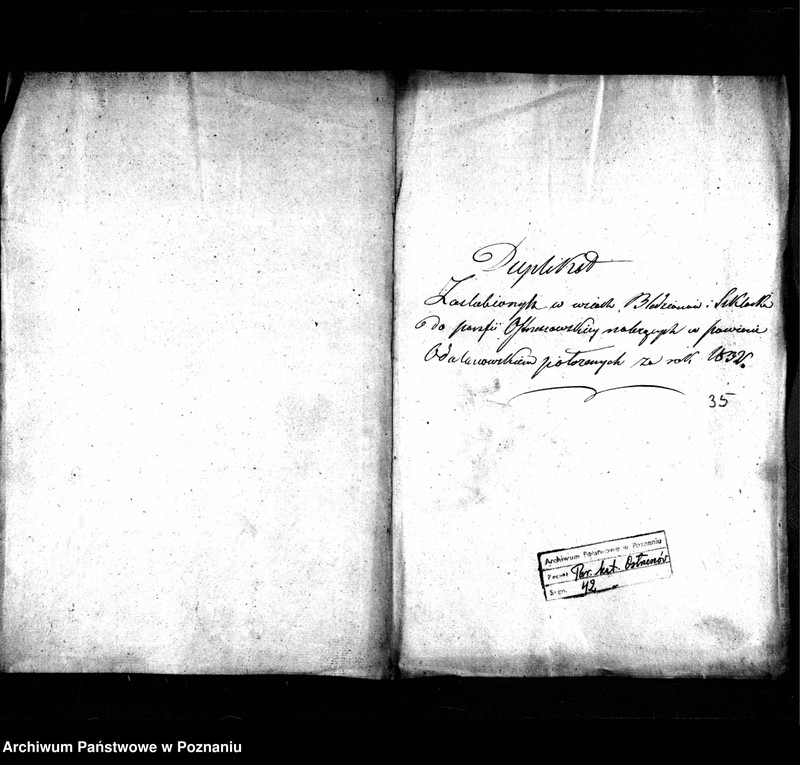 Duplikat
Zaslubionych w wsiach Bledzianow i Szklarka
do parafii Ostrzeszowskiey należących w powiecie
Odalanowskiem położonych za rok 1832.
35
Archiwum Państwowe w Poznaniu
Zespół Par. kat. Ostrzeszów
Sygn. 42
Archiwum Państwowe w Poznaniu